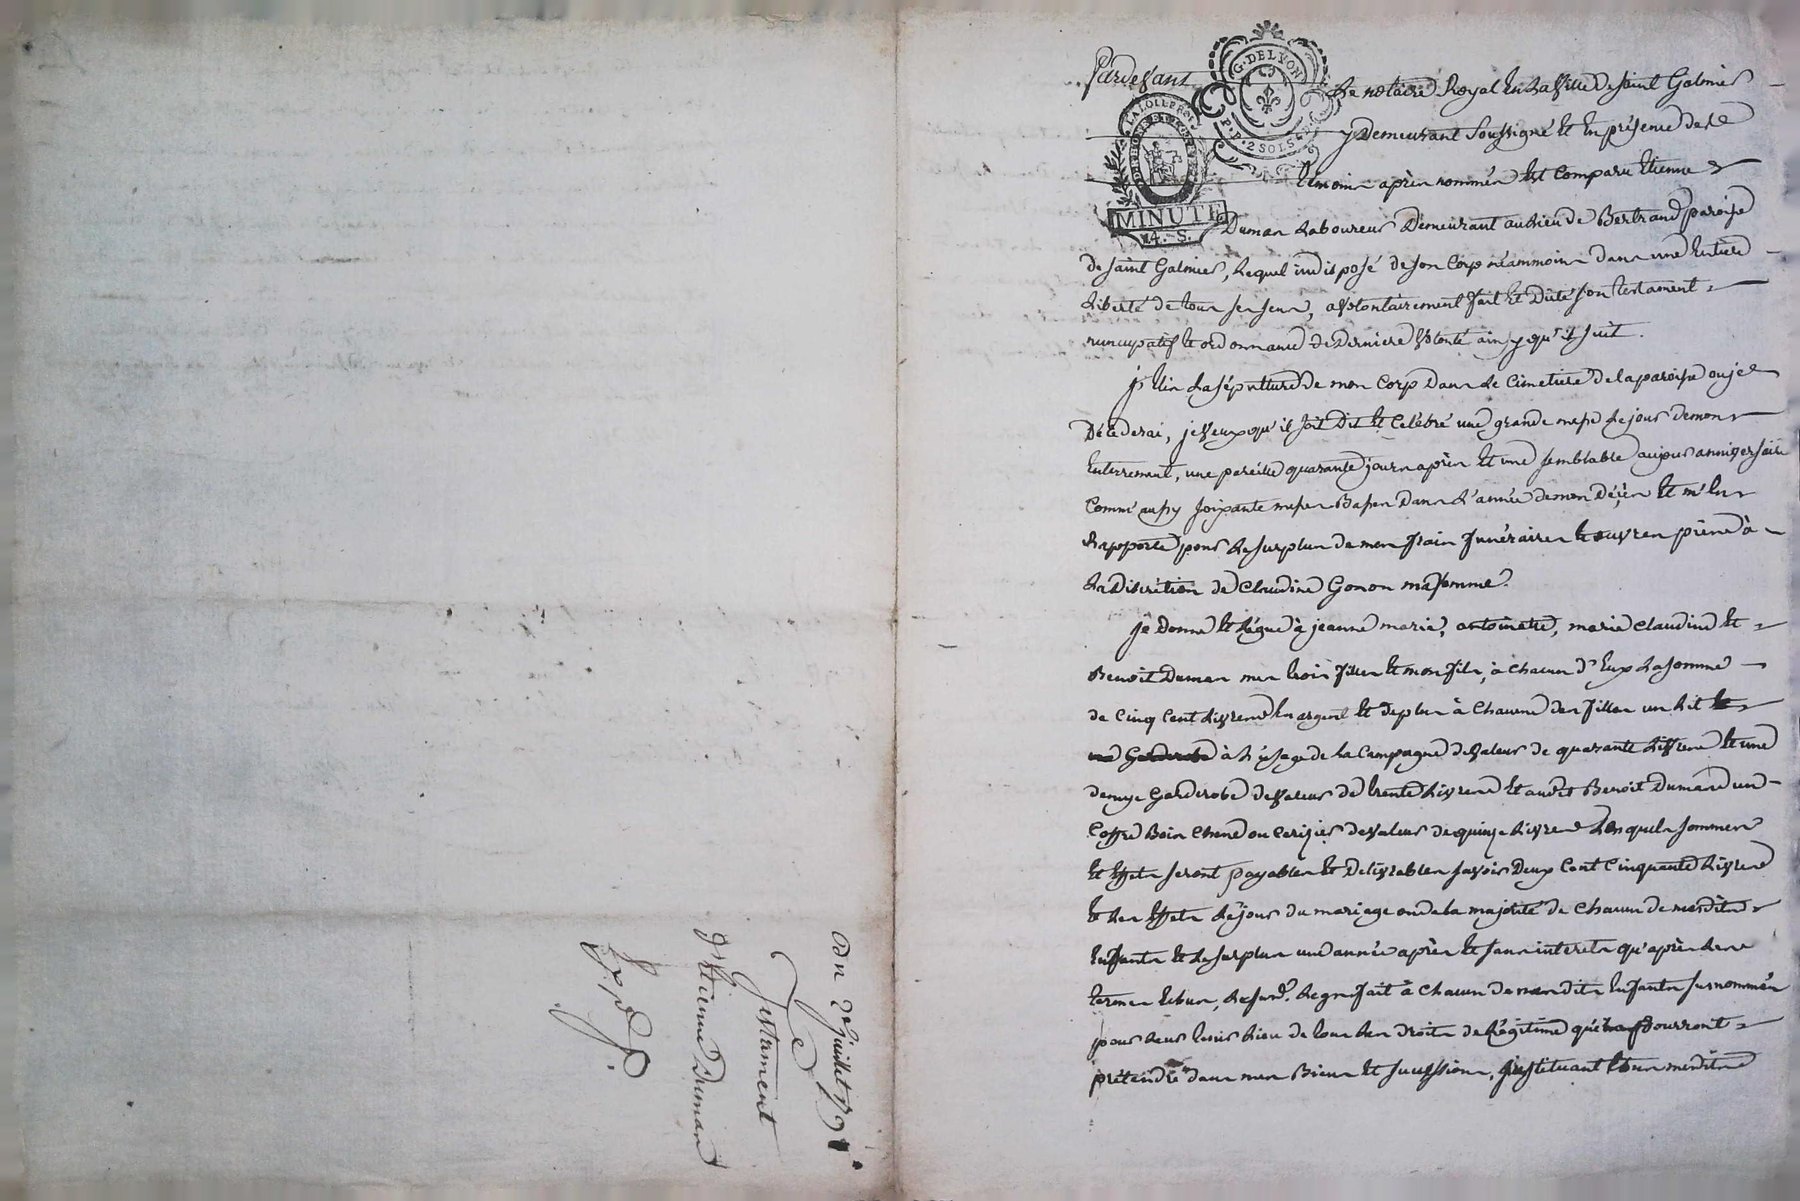 Du 2e juillet 179
Testament
d'Etienne Dumas
Pardevant Le notaire Royal En La Ville de saint Galmier
G. DE LYON
P.P. 2 SOLS
LA LOI LE ROI
MINUTE
4. S.
y Demeurant Soussigné Et En présence de
témoins après nommés Est Comparu Etienne
Dumas Laboureur Demeurant au Lieu de Bertrand paroisse
de saint Galmier, Lequel indisposé de son Corp néammoins dans une Entiere
Liberté de tous ses sens, a Volontairement fait Et Dicté son testament
nuncupatif Et ordonnance de Derniere Volonté ainsy qu'il suit.
j'Elis La sépulture de mon Corp Dans Le Cimetiere de la paroisse ou je
Décederai, je Veux qu'il soit Dit Et Célébré une grande messe Le jour de mon
Enterrement, une pareille quarante jours après Et une semblable au jour anniversaire
Comm' aussy soixante messes Basses Dans L'année de mon Décès Et m'En
Rapporte pour Le surplus de mes frais funéraires Et œuvres pies à
La Discrétion de Claudine Gonon ma femme.
je Donne Et Légue à jeanne marie, antoinette, marie Claudine Et
Benoit Dumas mes trois filles Et mon fils, à Chacun d'Eux La somme
de Cinq Cent Livres En argent Et de plus à Chacune des filles un Lit
à L'usage de la Campagne de Valeur de quarante Livres Et une
demye Garderobe de Valeur de trente Livres Et audit Benoit Dumas un
Coffre Bois Chene ou Cerizier de Valeur de quinze Livres Lesquels sommes
Et Effets seront payables Et Délivrables savoir Deux Cent Cinquante Livres
Et Les Effets Le jour du mariage ou de la majorité de Chacun de mesdits
Enfants Et Le surplus une année après Et sans interets qu'après Les
termes Echus, Le susd. Legs fait à Chacun de mesdits Enfants surnommés
pour Leur tenir Lieu de tous Les droits de Légitime qu'ils pourront
prétendre dans mes Biens Et succession, instituant tous mesdits